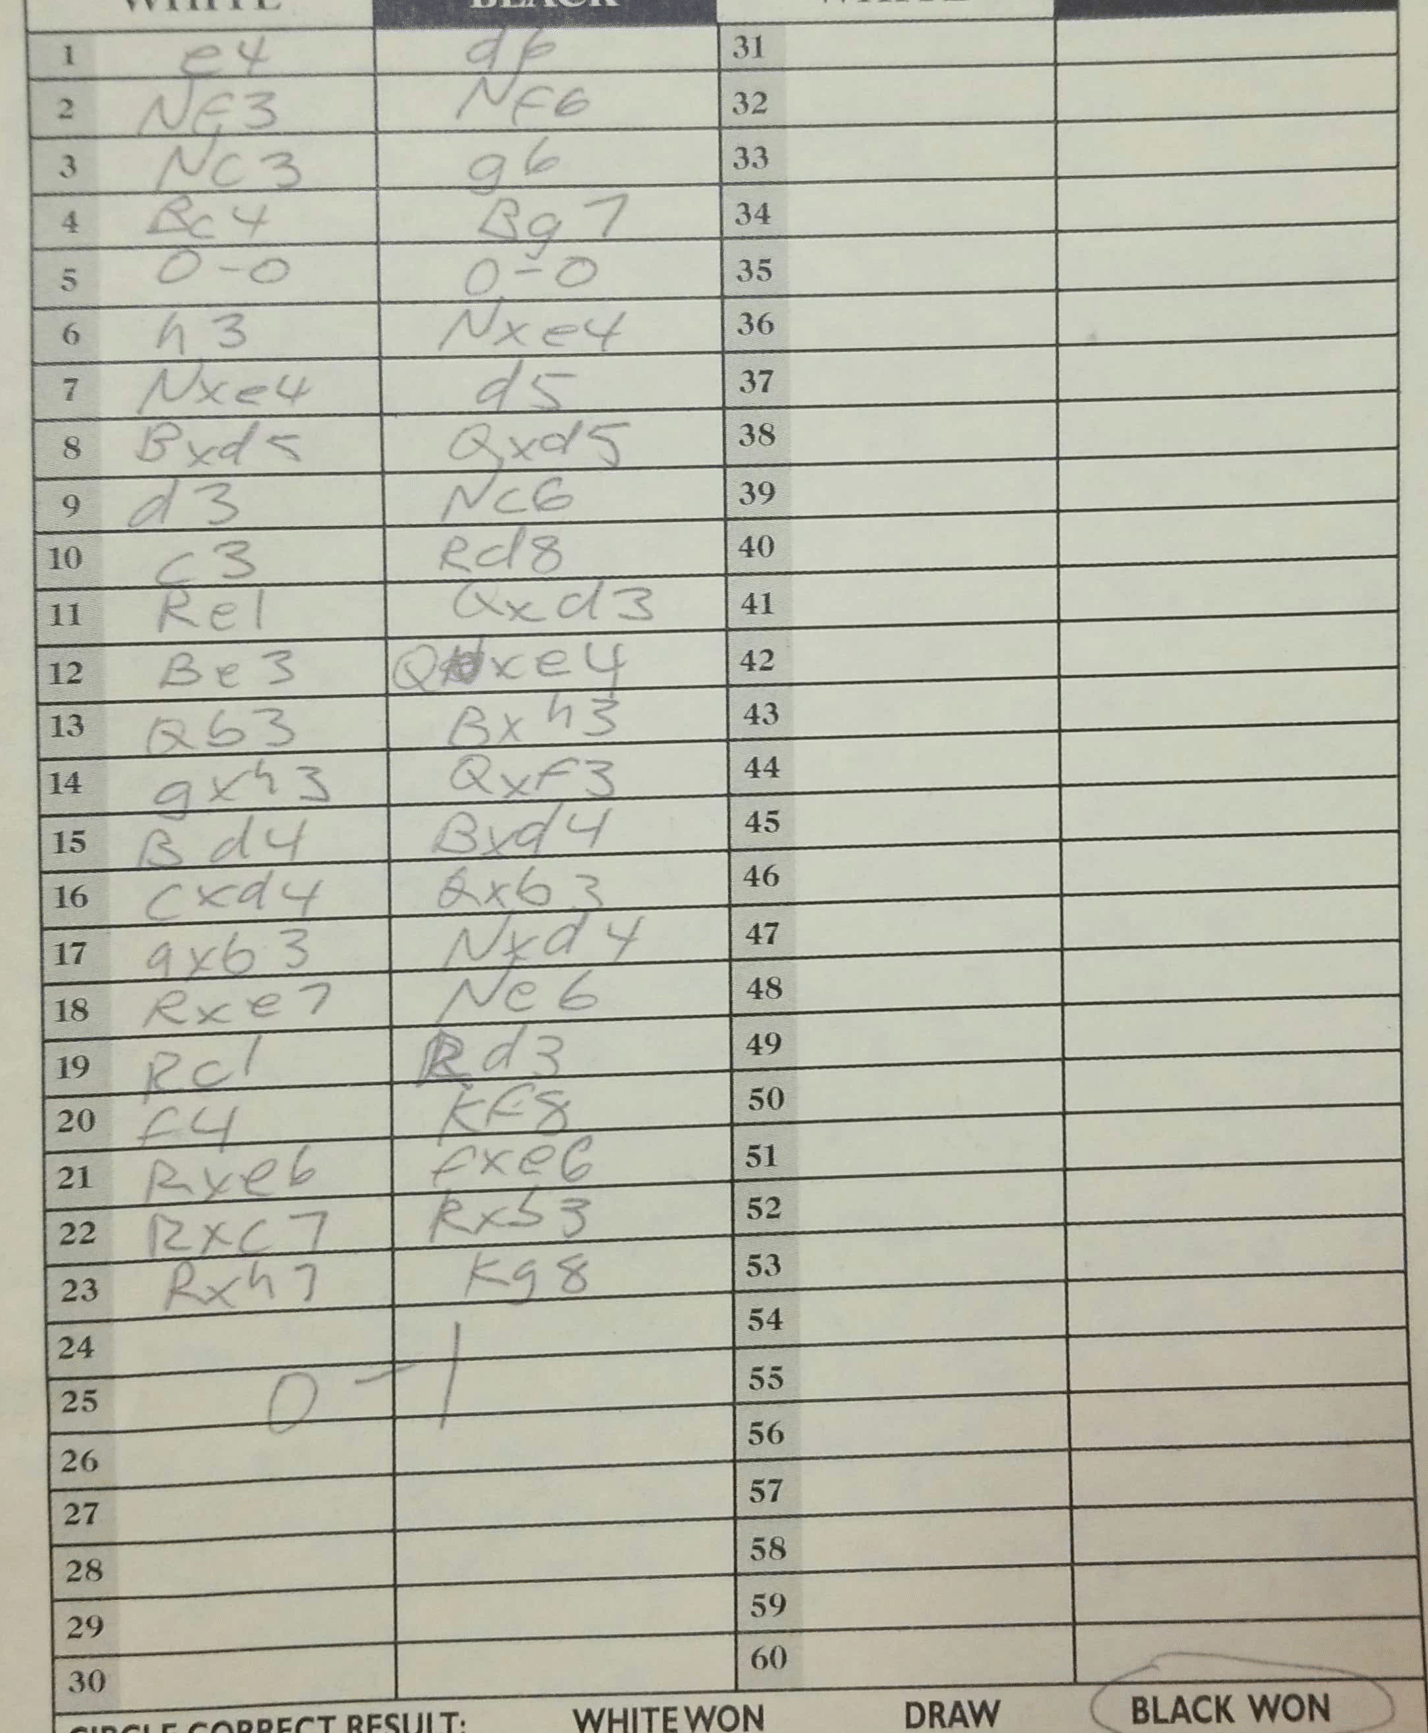 WHITE BLACK WHITE
1 e4 d6 31
2 NF3 NF6 32
3 Nc3 g6 33
4 Bc4 Bg7 34
5 0-0 0-0 35
6 h3 Nxe4 36
7 Nxe4 d5 37
8 Bxd5 Qxd5 38
9 d3 Nc6 39
10 c3 Rd8 40
11 Re1 Qxd3 41
12 Be3 Qxe4 42
13 Qb3 Bxh3 43
14 gxh3 QxF3 44
15 Bd4 Bxd4 45
16 cxd4 Qxb3 46
17 axb3 Nxd4 47
18 Rxe7 Ne6 48
19 Rc1 Rd3 49
20 F4 KF8 50
21 Rxe6 Fxe6 51
22 Rxc7 Rxb3 52
23 Rxh7 Kg8 53
24 54
25 0-1 55
26 56
27 57
28 58
29 59
30 60
CIRCLE CORRECT RESULT: WHITE WON DRAW BLACK WON